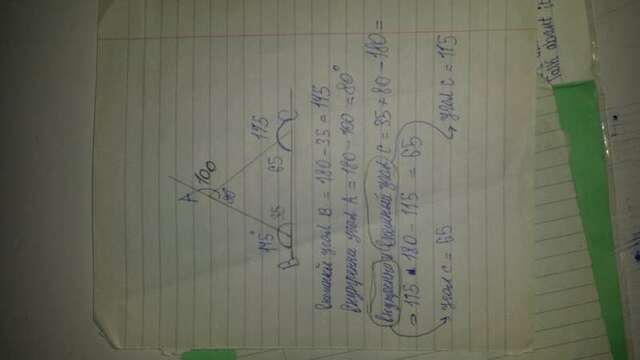 A
100
80°
145°
35
65
115
B
C
Внешний угол B = 180 - 35 = 145
Внутренний угол A = 180 - 100 = 80°
Внутренно Внешний угол C = 35 + 80 - 180 =
= 115 180 - 115 = 65
угол C = 65
угол C = 115
Talk about